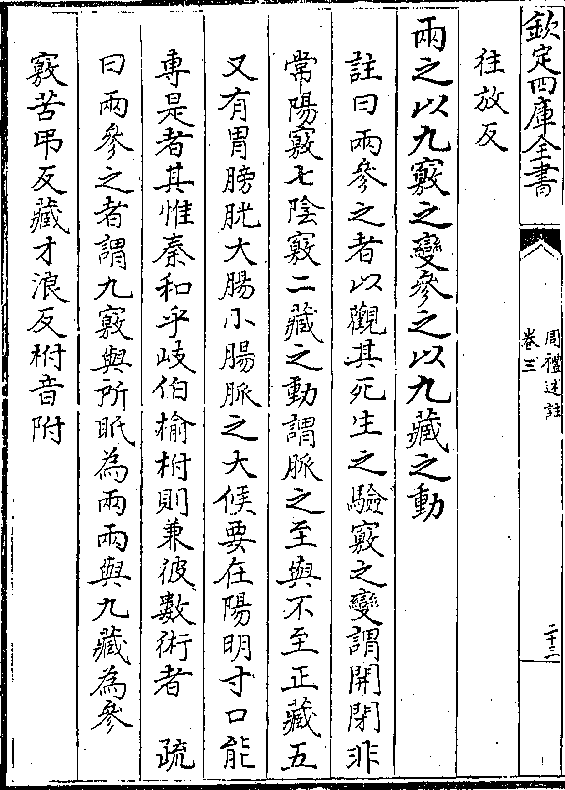 欽定四庫全書
周禮述註
卷三
二十二
往放反
兩之以九竅之變參之以九藏之動
註曰兩參之者以觀其死生之驗竅之變謂開閉非
常陽竅七陰竅二藏之動謂脈之至與不至正藏五
又有胃膀胱大腸小腸脈之大候要在陽明寸口能
專是者其惟秦和乎岐伯榆柎則兼彼數術者　疏
曰兩參之者謂九竅與所眂為兩兩與九藏為參
竅苦弔反藏才浪反柎音附